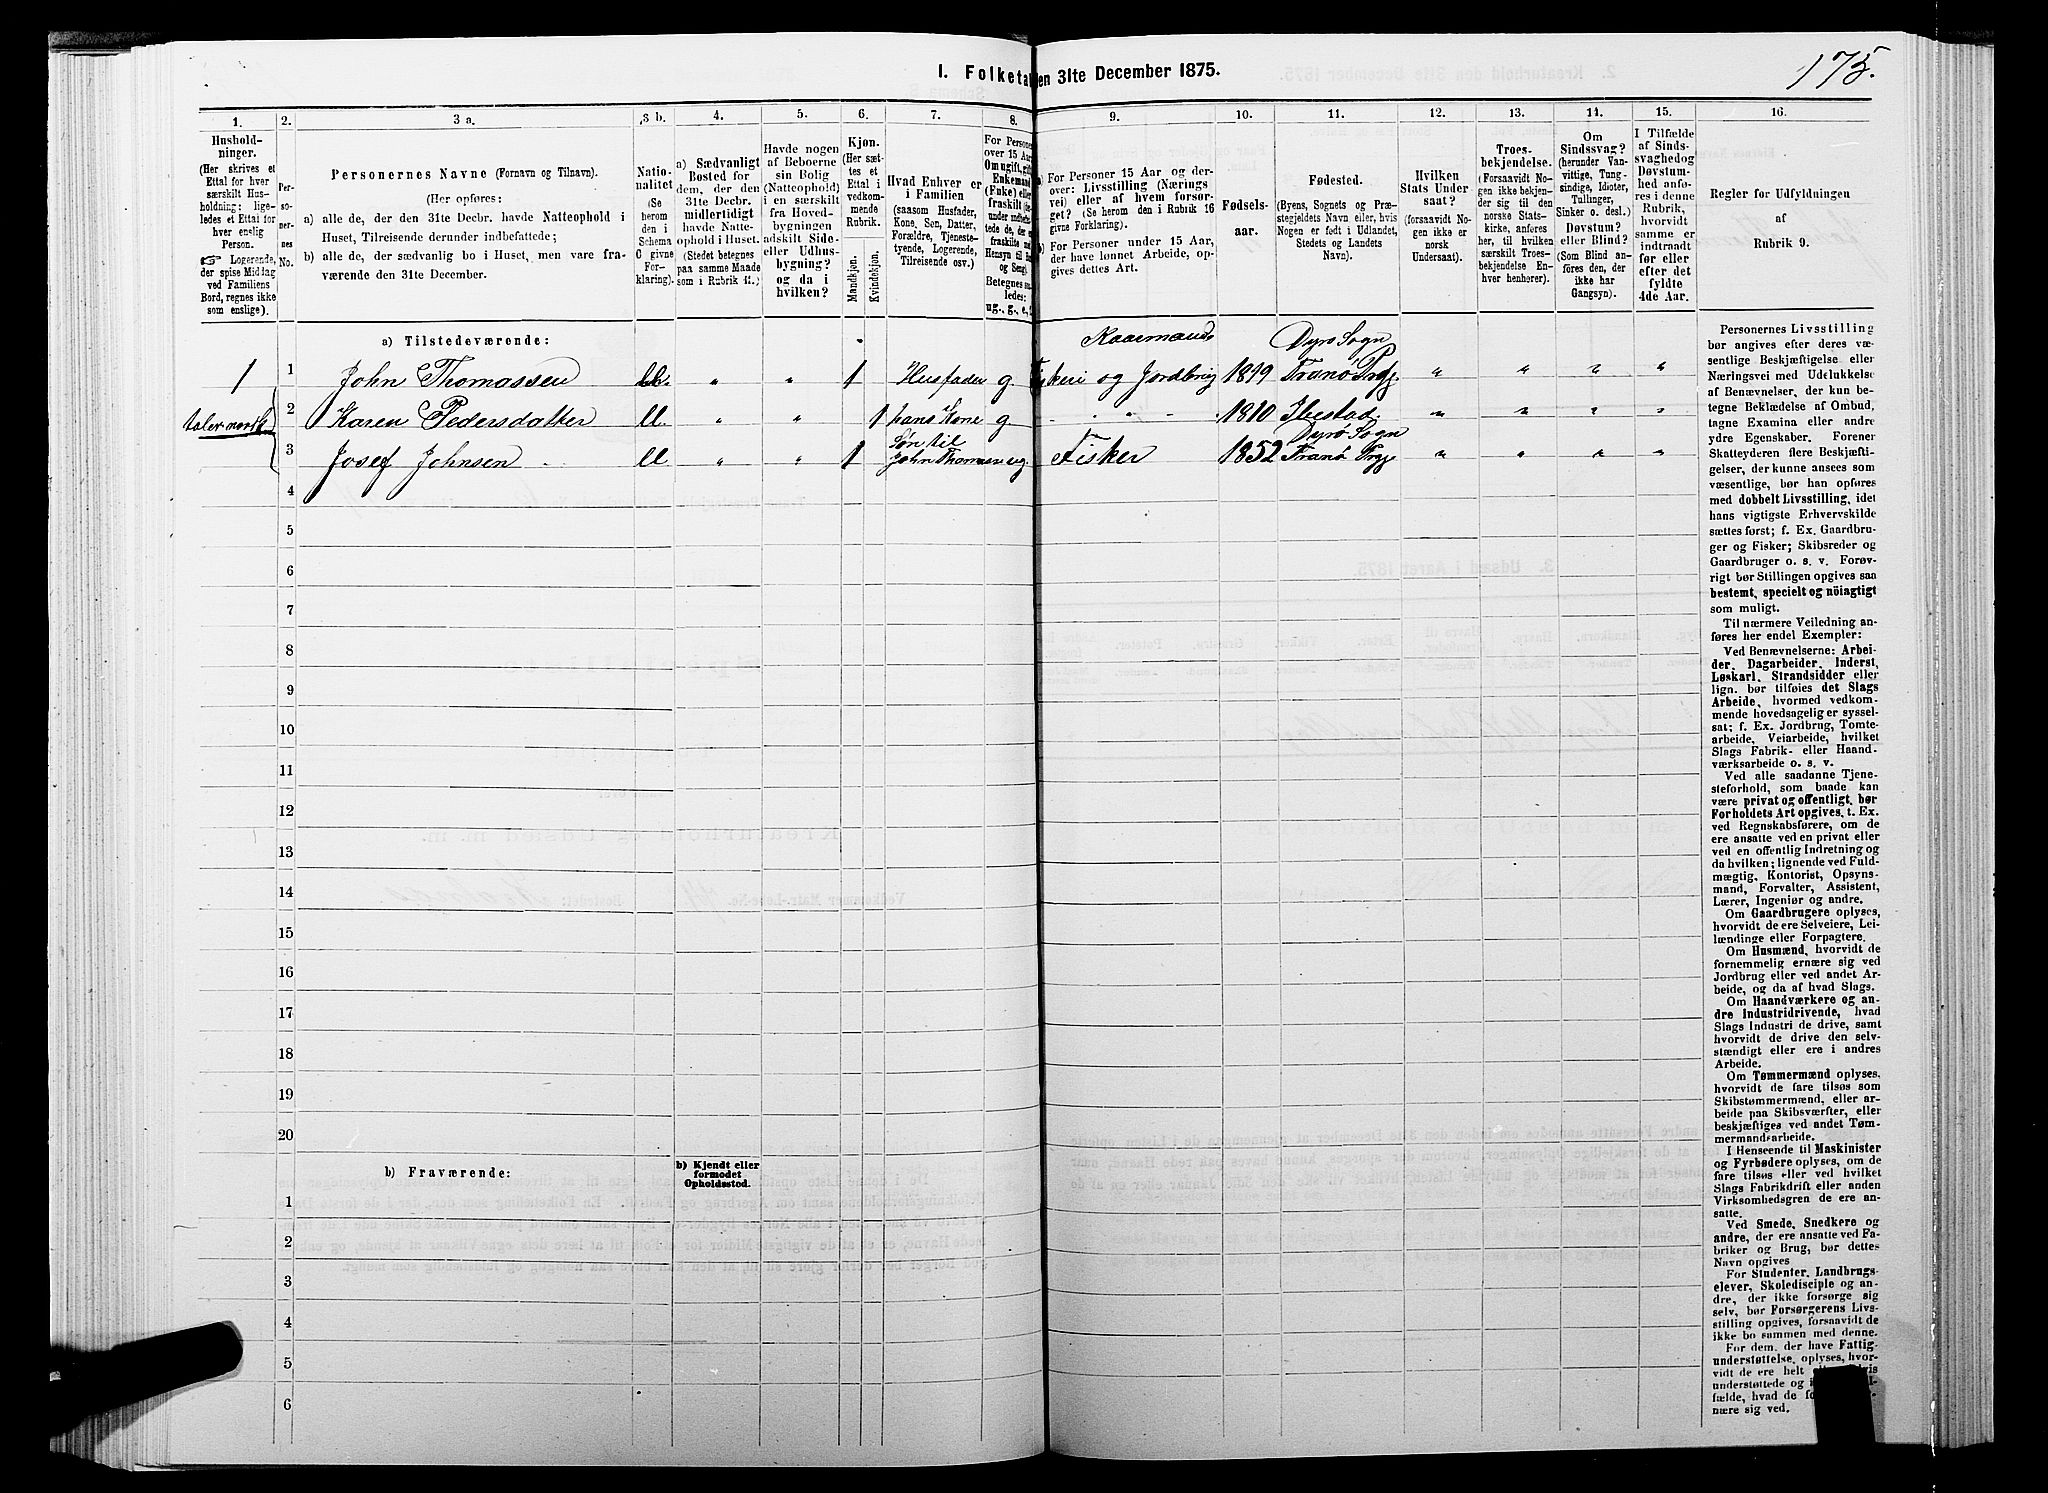 1. Folketal den 31te December 1875.
175.
1.
Hushold-
ninger.
(Her skrives et
Ettal for hver
særskilt Hus-
holdning; lige-
ledes et Ettal for
hver enslig
Person.
☞ Logerende,
der spise Middag
ved Familiens
Bord, regnes ikke
som enslige).
2.
Per-
so-
ner-
nes
No.
3 a.
Personernes Navne (Fornavn og Tilnavn).
(Her opføres:
a) alle de, der den 31te Decbr. havde Natteophold i
Huset, Tilreisende derunder indbefattede;
b) alle de, der sædvanlig bo i Huset, men vare fra-
værende den 31te December.
3 b.
Natio-
nalitet
(Se
herom
den i
Schema
C givne
For-
klaring).
4.
a) Sædvanligt
Bosted for
dem, der den
31te Decbr.
midlertidigt
havde Natte-
ophold i Huset.
(Stedet betegnes
paa samme Maade
som i Rubrik 11.)
5.
Havde nogen
af Beboerne
sin Bolig
(Natteophold)
i en særskilt
fra Hoved-
bygningen
adskilt Side-
eller Udhus-
bygning?
og da i
hvilken?
6.
Kjøn.
(Her sæt-
tes et
Ettal i
vedkom-
mende
Rubrik.
Mandkjøn.
Kvindekjøn.
7.
Hvad Enhver er
i Familien
(saasom Husfader,
Kone, Søn, Datter,
Forældre, Tjeneste-
tyende, Logerende,
Tilreisende osv.)
8.
For Personer
over 15 Aar:
Om ugift, gift,
Enkemand
(Enke) eller
fraskilt
9.
a) For Personer 15 Aar og der-
over: Livsstilling (Nærings
vei) eller af hvem forsør-
get? (Se herom den i Rubrik 16
givne Forklaring).
b) For Personer under 15 Aar,
der have lønnet Arbeide, op-
gives dettes Art.
10.
Fødsels-
aar.
11.
Fødested.
(Byens, Sognets og Præ-
stegjeldets Navn eller, hvis
Nogen er født i Udlandet,
Stedets og Landets
Navn).
12.
Hvilken
Stats Under
saat?
(forsaavidt No-
gen ikke er
norsk
Undersaat).
13.
Troes-
bekjendelse.
(Forsaavidt No-
gen ikke bekjen-
der sig til den
norske Stats-
kirke, anføres
her, til hvilken
særskilt Troes-
bekjendelse En-
hver henhører).
14.
Om
Sindssvag?
(herunder Van-
vittige, Tung-
sindige, Idioter,
Tullinger,
Sinker o. desl.)
Døvstum?
eller Blind?
(Som Blind an-
føres den, der
ikke har
Gangsyn).
15.
I Tilfælde
af Sinds-
svaghed og
Døvstum-
hed anfø-
res i denne
Rubrik,
hvorvidt
samme er
indtraadt
før eller
efter det
fyldte
4de Aar.
16.
Regler for Udfyldningen
af
Rubrik 9.
a) Tilstedeværende:
1 1 John Thomassen " " 1 Husfader g. Fiskeri og Jordbrug 1899 Dyrø Sogn Tranø Prgj. " " " "
taler norsk 2 Karen Pedersdatter " " 1 hans Kone g. " " 1810 Ibestad. " " " "
3 Josef Johnsen " " 1 Søn til John Thomassen ug. Fisker 1852 Dyrø Sogn Tranø Prgj " " " "
4
5
6
7
8
9
10
11
12
13
14
15
16
17
18
19
20
b) Fraværende:
b) Kjendt eller
formodet
Opholdssted.
1
2
3
4
5
6
Personernes Livsstilling
bør angives efter deres væ-
sentlige Beskjæftigelse eller
Næringsvei med Udelukkelse
af Benævnelser, der kun be-
tegne Beklædelse af Ombud,
tagne Examina eller andre
ydre Egenskaber. Forener
Skatteyderen flere Beskjæfti-
gelser, der kunne ansees som
væsentlige, bør han opføres
med dobbelt Livsstilling, idet
hans vigtigste Erhvervskilde
sættes først; f. Ex. Gaardbru-
ger og Fisker; Skibsreder og
Gaardbruger o. s. v. Forøv-
rigt bør Stillingen opgives saa
bestemt, specielt og nöiagtigt
som muligt.
Til nærmere Veiledning an-
føres her endel Exempler:
Ved Benævnelserne: Arbei-
der, Dagarbeider, Inderst,
Løskarl, Strandsidder eller
lign. bør tilføies det Slags
Arbeide, hvormed vedkom-
mende hovedsagelig er syssel-
sat; f. Ex. Jordbrug, Tomte-
arbeide, Veiarbeide, hvilket
Slags Fabrik- eller Haand-
værksarbeide o. s. v.
Ved alle saadanne Tjene-
steforhold, som baade kan
være privat og offentligt, bør
Forholdets Art opgives, t. Ex.
ved Regnskabsførere, om de
ere ansatte ved en privat eller
ved en offentlig Indretning og
da hvilken; lignende ved Fuld-
mægtig, Kontorist, Opsyns-
mand, Forvalter, Assistent,
Lærer, Ingeniør og andre.
Om Gaardbrugere oplyses,
hvorvidt de ere Selveiere, Lei-
lændinge eller Forpagtere.
Om Husmænd, hvorvidt de
fornemmelig ernære sig ved
Jordbrug eller ved andet Ar-
beide, og da af hvad Slags.
Om Haandværkere og an-
dre Industridrivende, hvad
Slags Industri de drive, samt
hvorvidt de drive den selv-
stændigt eller ere i andres
Arbeide.
Om Tømmermænd oplyses,
hvorvidt de fare tilsøs som
Skibstømmermænd, eller ar-
beide paa Skibsværfter, eller
beskjæftiges ved andet Tøm-
mermandsarbeide.
I Henseende til Maskinister
og Fyrbødere oplyses, om de
fare tilsøs eller ved hvilket
Slags Fabrikdrift eller anden
Virksomhedsgren de ere an-
satte.
Ved Smede, Snedkere og
andre, der ere ansatte ved Fa-
briker og Brug, bør dettes
Navn opgives
For Studenter, Landbrugs-
elever, Skoledisciple og an-
dre, der ikke forsørge sig
selv, bør Forsørgerens Livs-
stilling opgives, forsaavidt de
ikke bo sammen med denne.
For dem, der have Fattig-
understøttelse, oplyses, hvor-
vidt de ere helt
understøttede og
fælde, hvad de
nære sig ved.